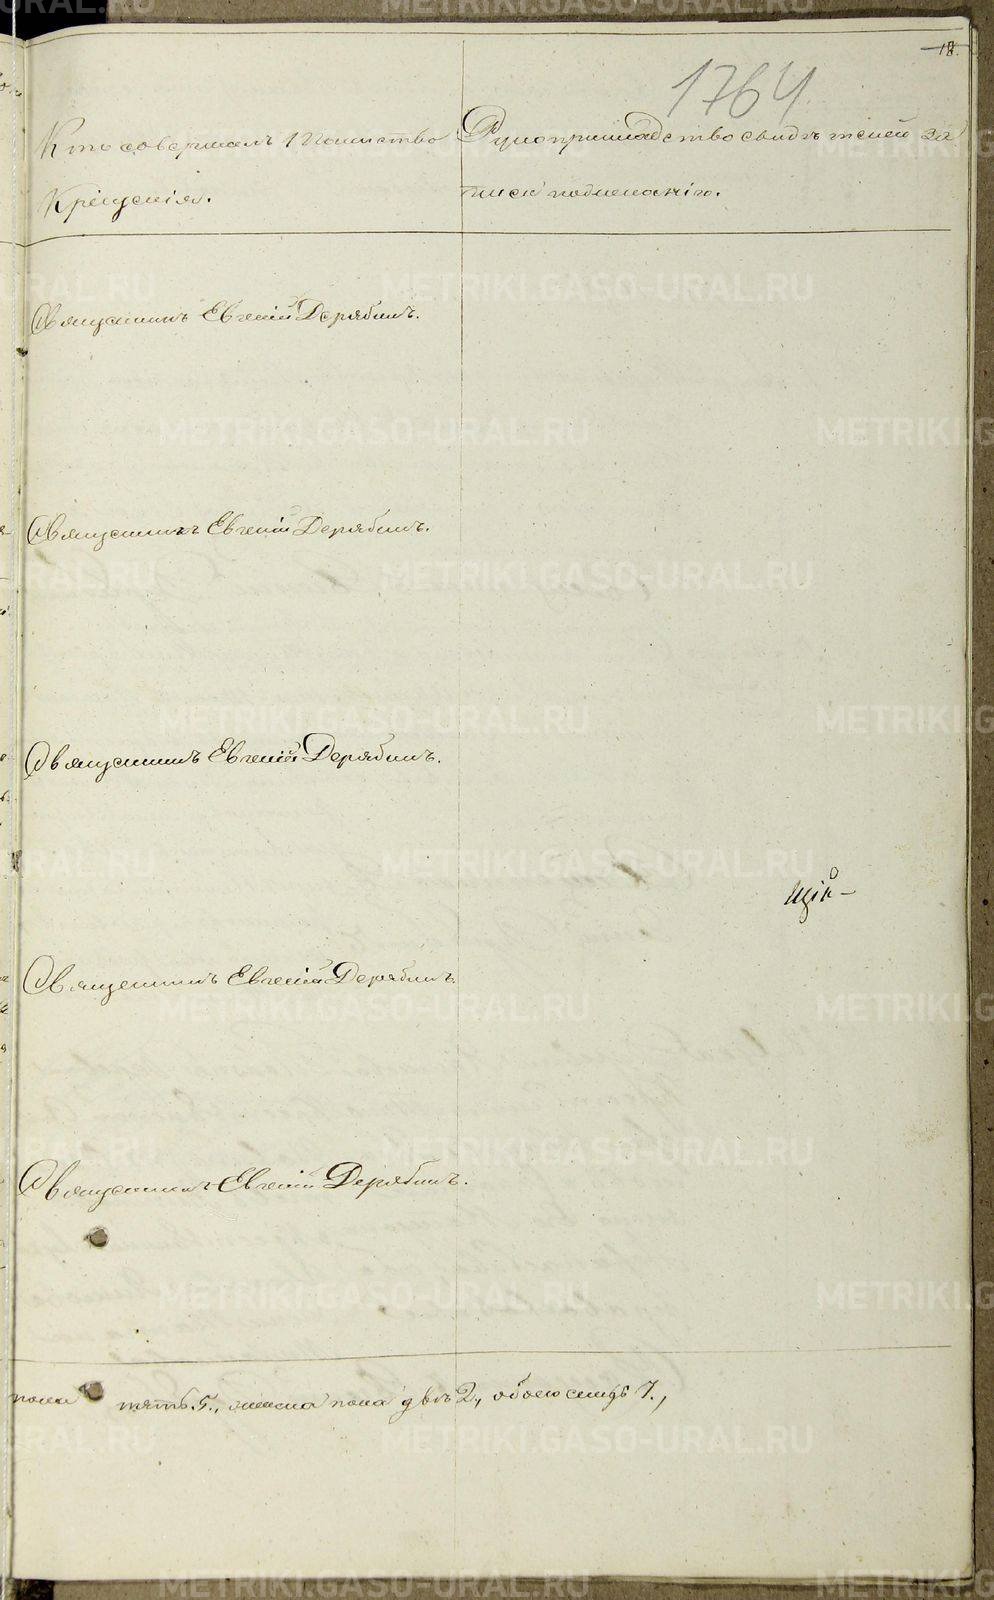 18.
1764
Кто совершалъ Таинство
Крещенія.
Рукоприкладство свидѣтелей за
писи по желанію.
Священникъ Евгеній Дерябинъ.
Священникъ Евгеній Дерябинъ.
Священникъ Евгеній Дерябинъ.
щій
Священникъ Евгеній Дерябинъ.
Священникъ Евгеній Дерябинъ.
пола пять 5., женска пола двѣ 2., обоего 7.,
METRIKI.GASO-URAL.RU